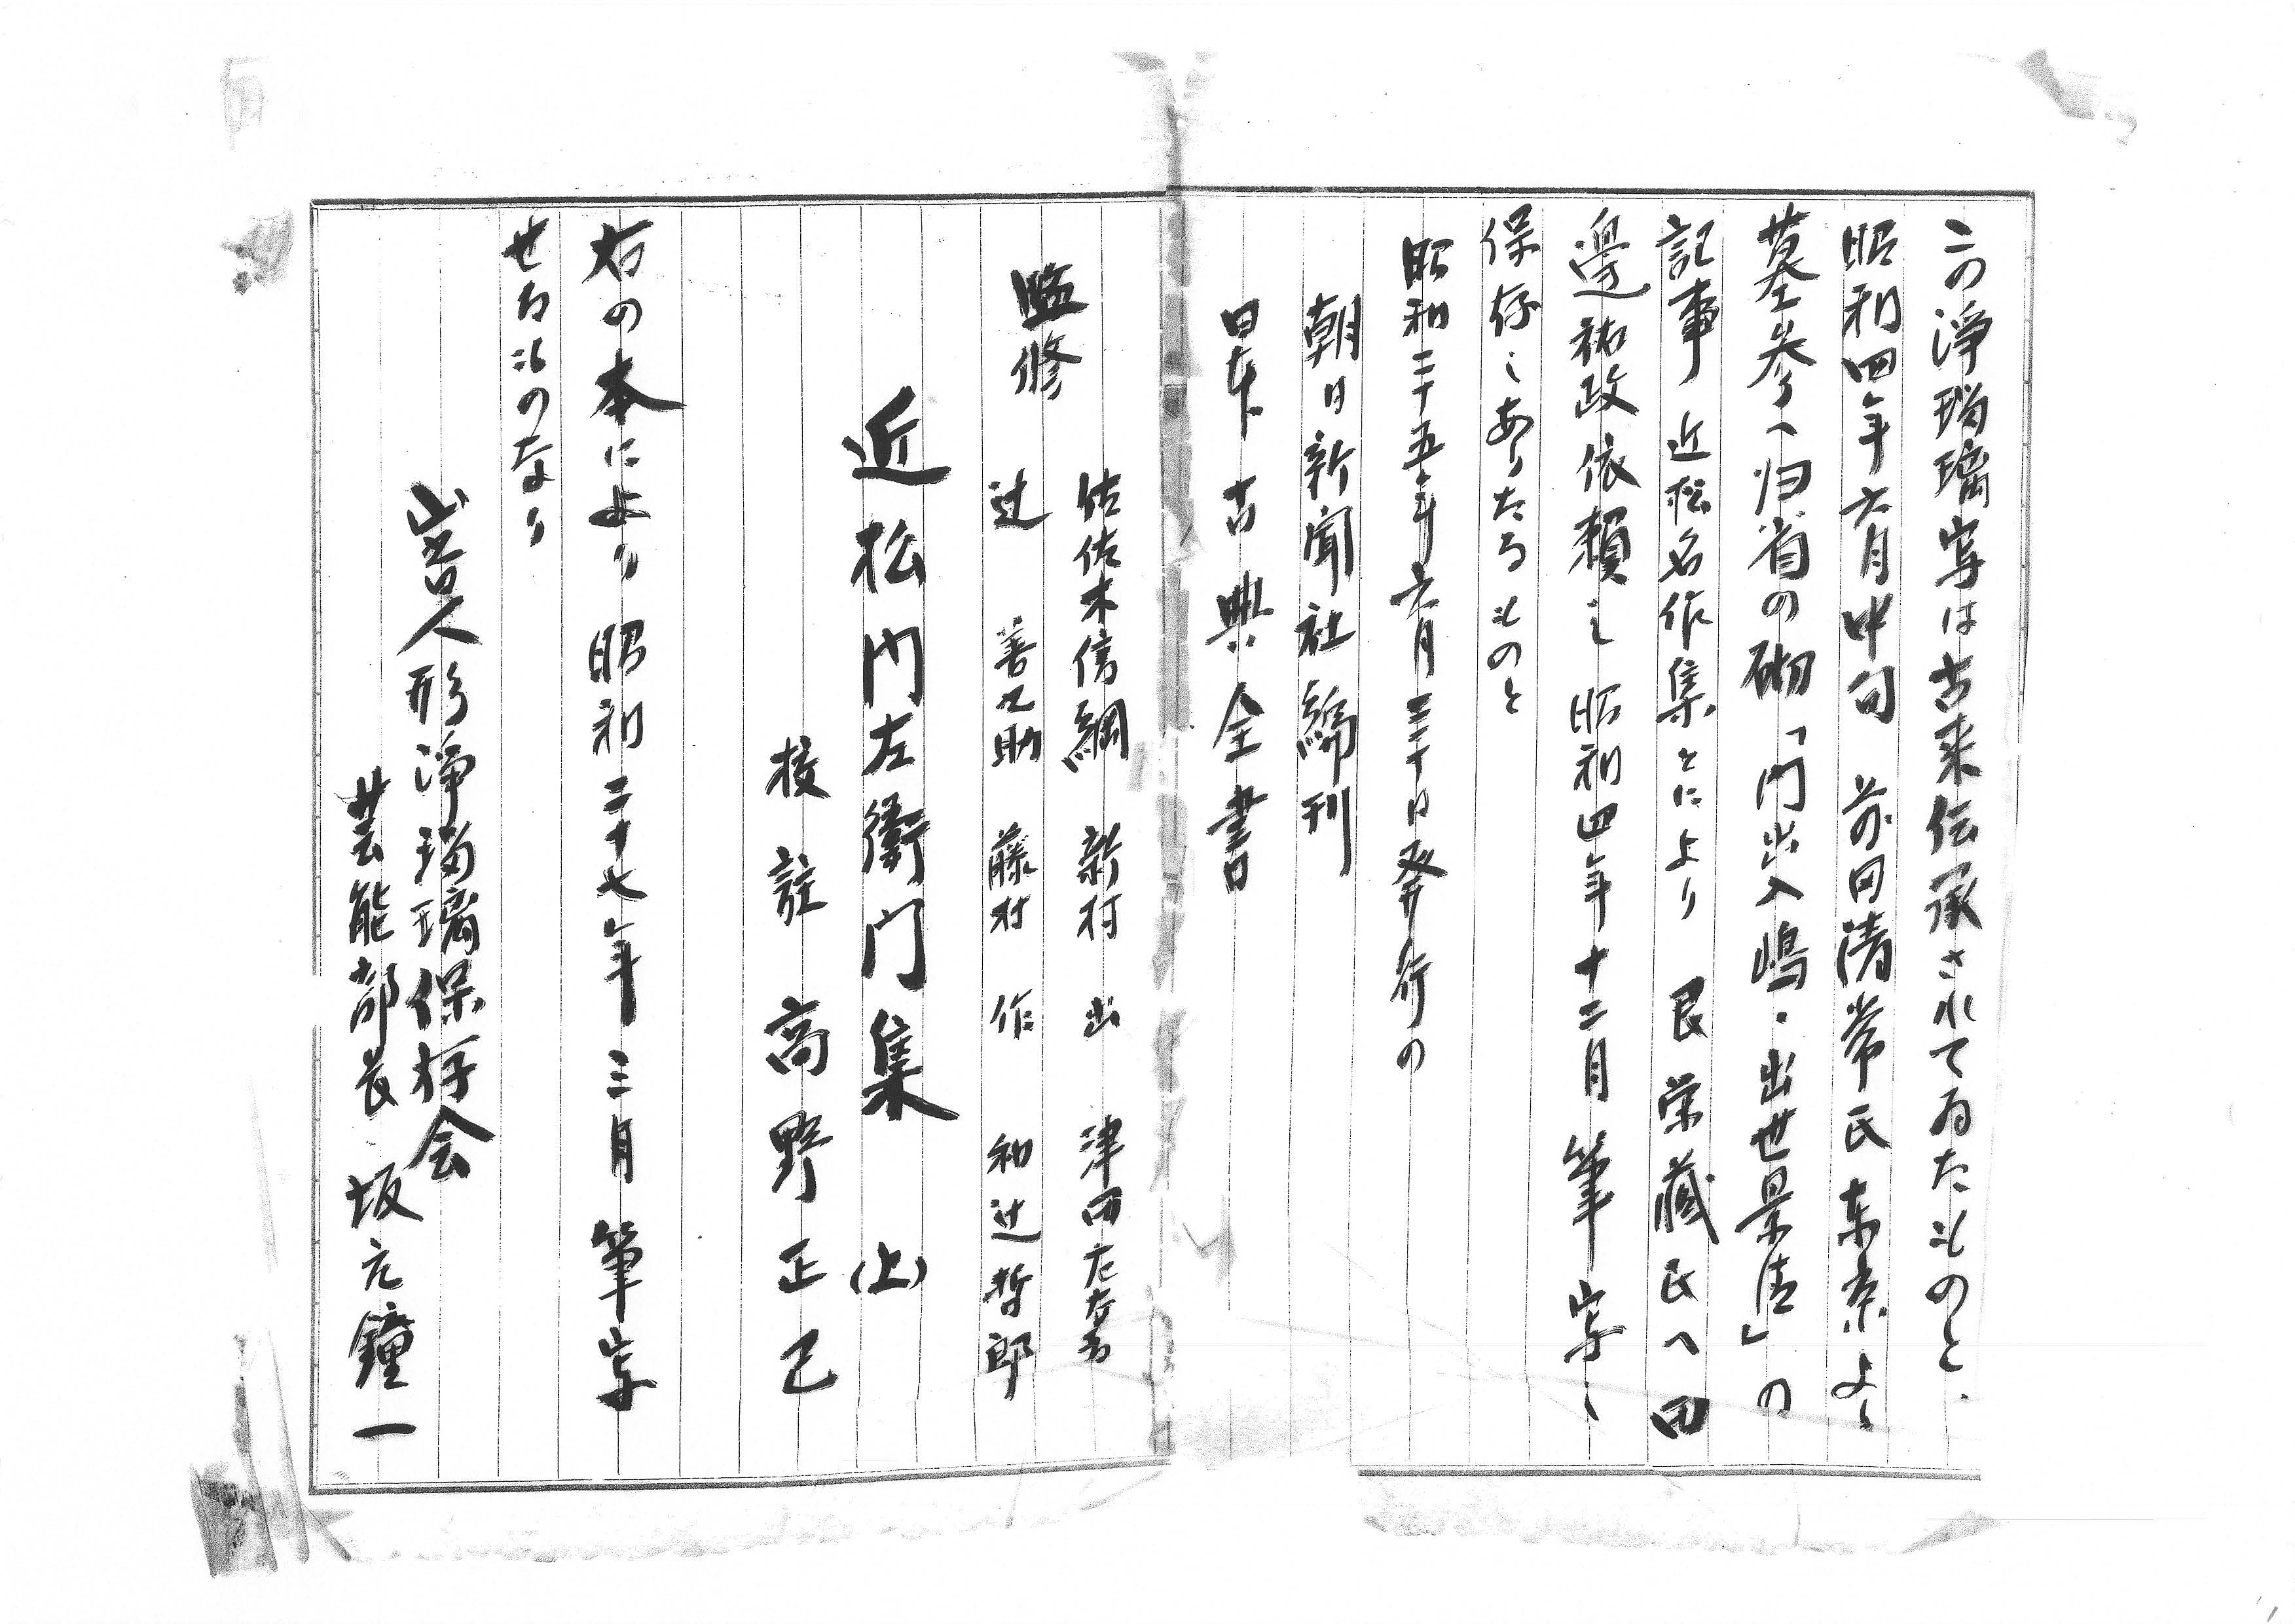 この浄瑠璃写は古来伝承されてゐたものと、
昭和四年六月中旬 前田清常氏東京より
墓参へ帰省の砌「門出八嶋・出世景清」の
記事 近松名作集とにより 艮栄蔵氏へ田
邊祐政依頼し 昭和四年十二月 筆写し
保存しありたるものと
昭和二十五年六月三十日発行の
朝日新聞社編刊
日本古典全書
監修
佐佐木信綱 新村 出 津田左右吉
辻 善之助 藤村 作 和辻哲郎
近松門左衛門集 (上)
校註 高野正巳
右の本により 昭和二十七年三月 筆写
せるものなり
人形浄瑠璃保存会
芸能部長 坂元鐘一